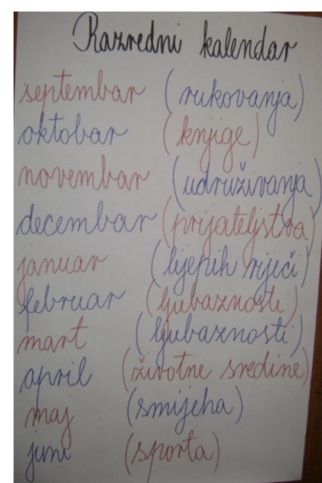 Razredni kalendar
septembar (rukovanja)
oktobar (knjige)
novembar (udruživanja)
decembar (prijateljstva)
januar (lijepih riječi)
februar (ljubaznosti)
mart (ljubaznosti)
april (životne sredine)
maj (smijeha)
juni (sporta)